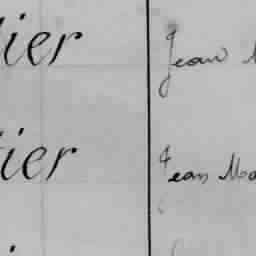 ier Jean
ier Jean Ma